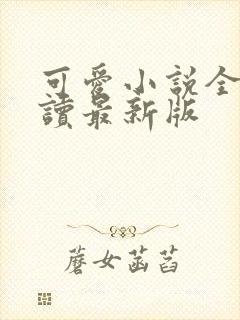 可愛小說全
讀最新版
蘑女菡萏